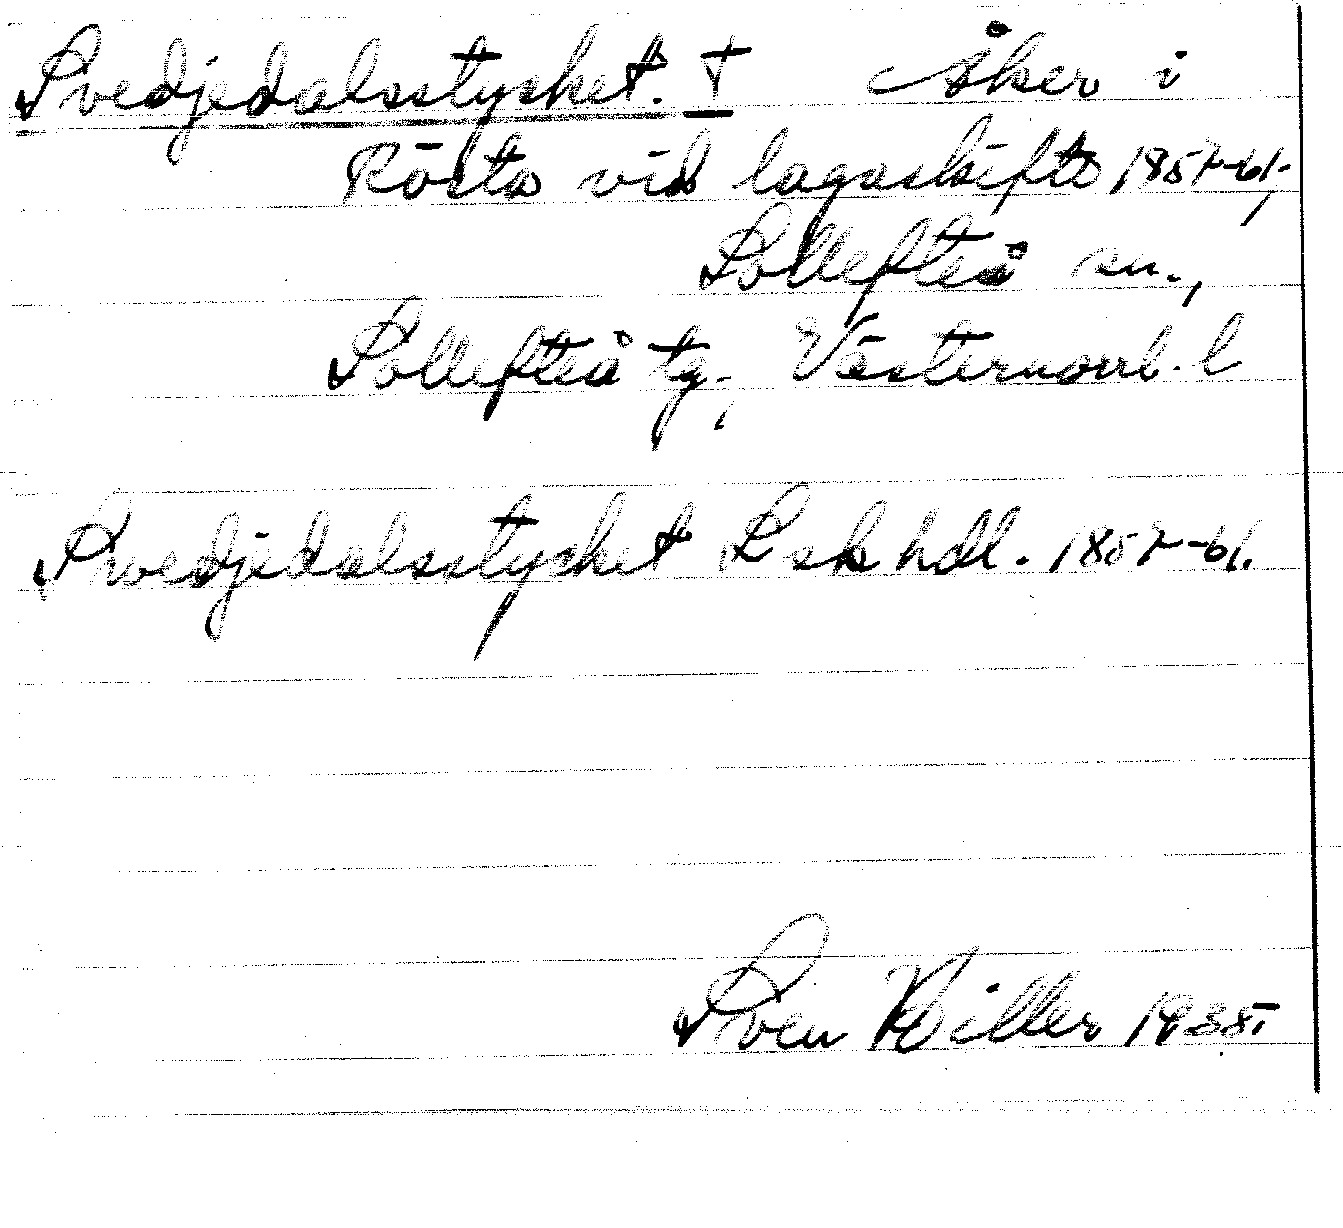 Svedjedalsstycket. † Åker i
Rösta vid lagaskifte 1857-61,
Sollefteå sn.,
Sollefteå tg., Västernorrl. l
Svedjedalsstycket Lsk hdl. 1857-61.
Sven Hiller 1935